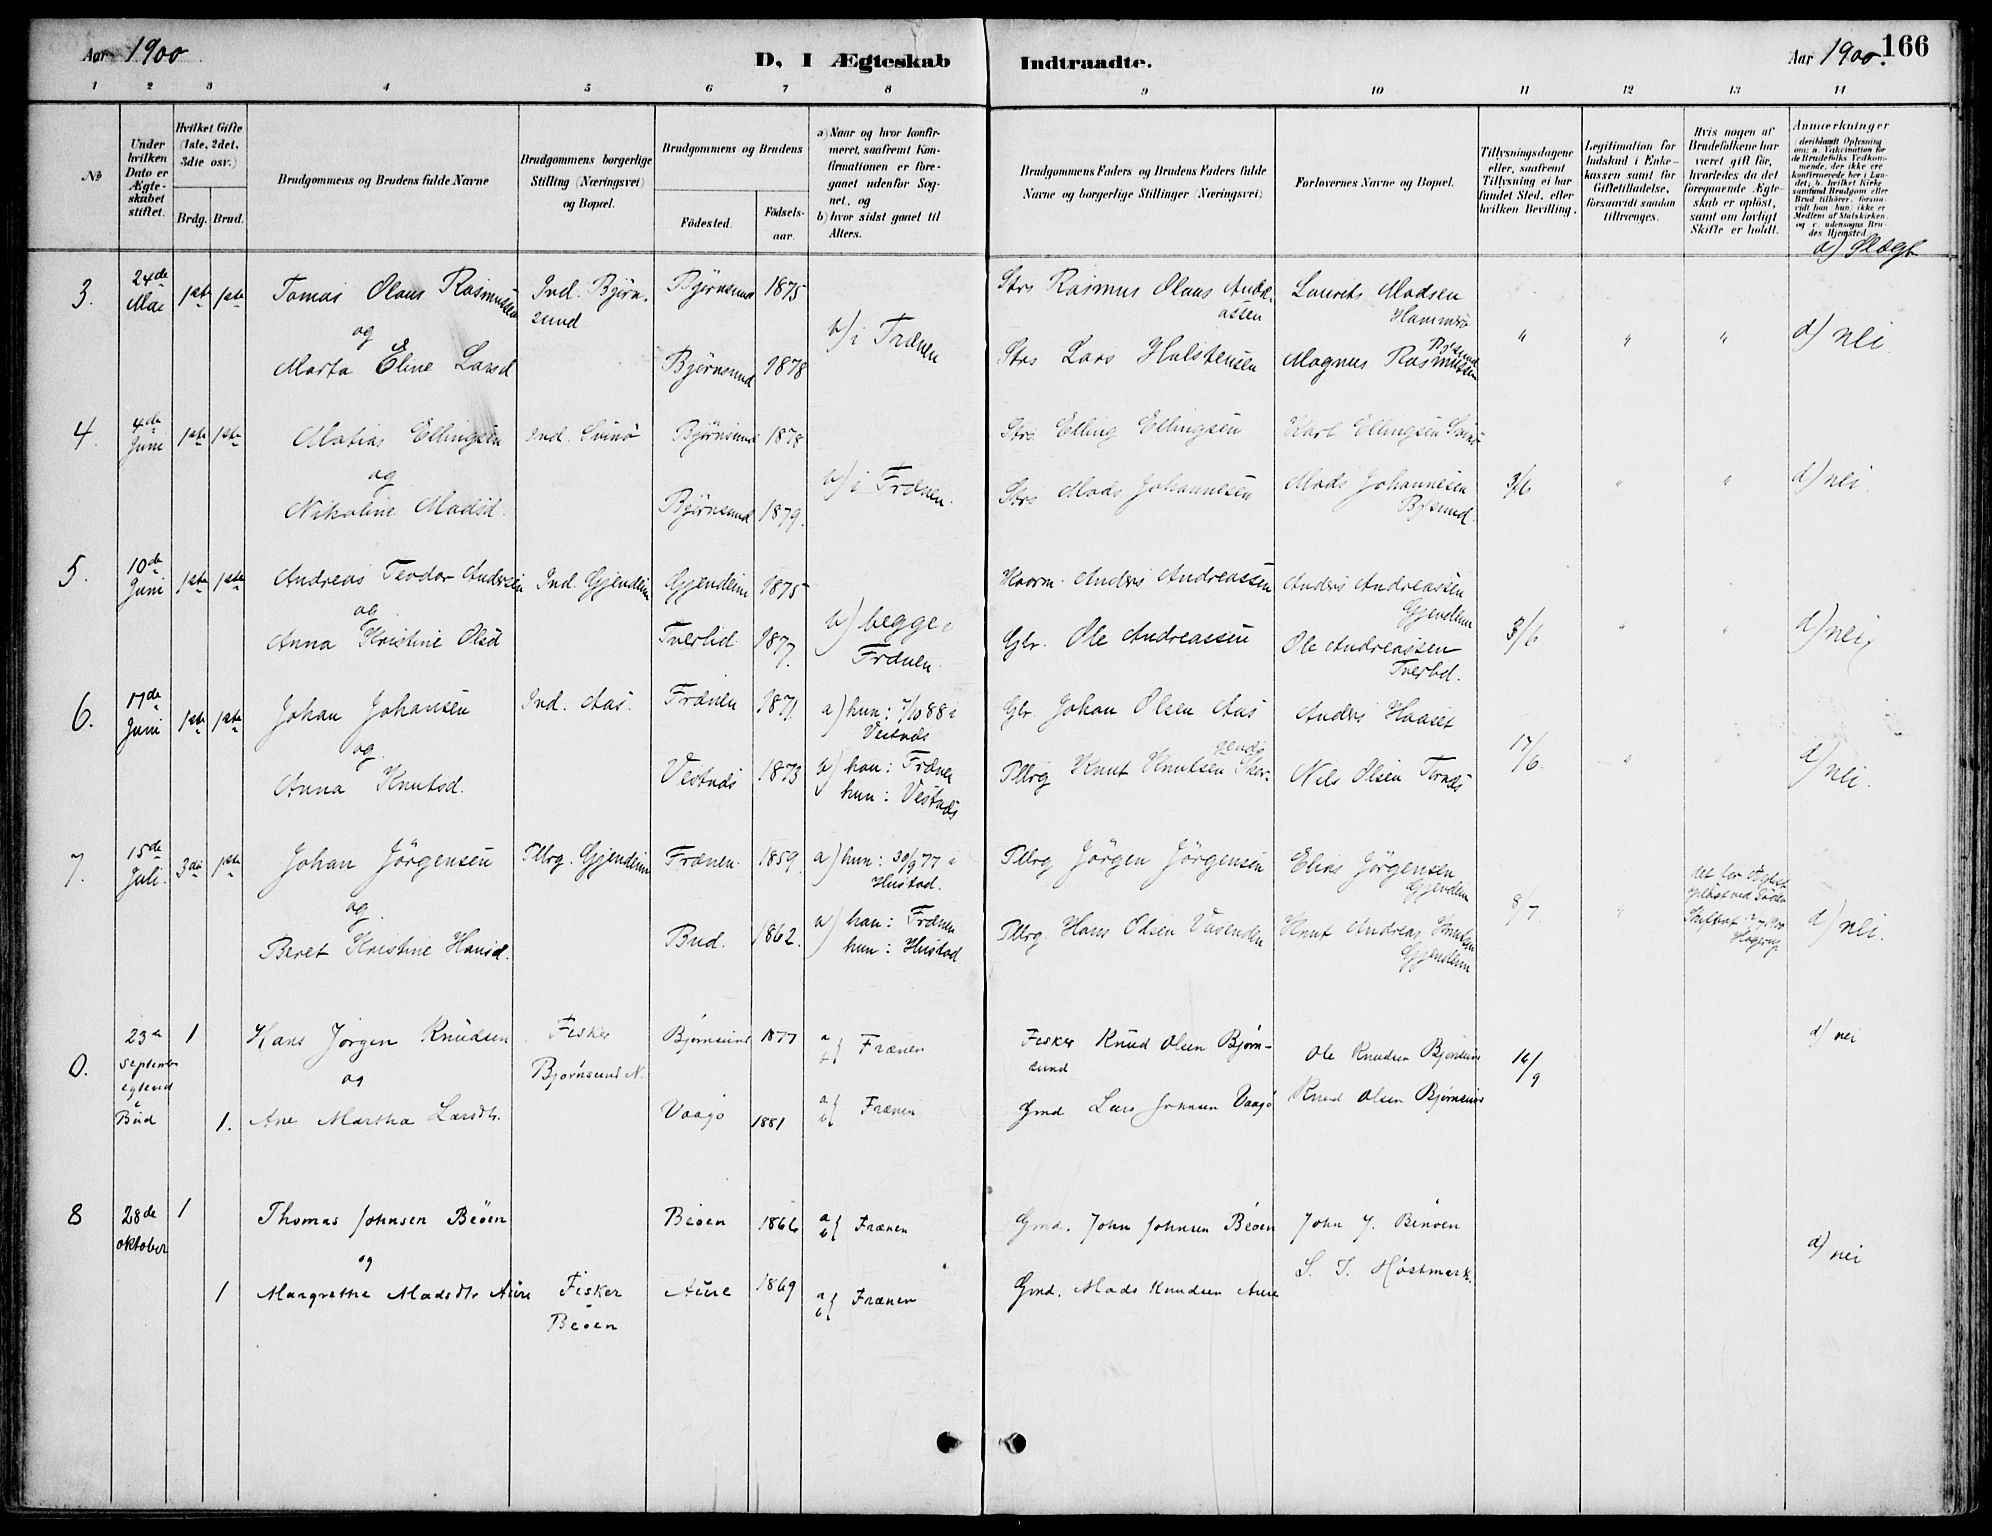 Aar 1900
D, I Ægteskab Indtraadte.
Aar 1900.
166
1 2 3 4 5 6 7 8 9 10 11 12 13 14
No
Under hvilken Dato er Ægteskabet stiftet.
Hvilket Gifte (1ste, 2det, 3dte osv.)
Brdg. Brud.
Brudgommens og Brudens fulde Navne
Brudgommens borgerlige Stilling (Næringsvei) og Bopæl.
Brudgommens og Brudens
Fødested.
Fødsels-aar.
a) Naar og hvor konfirmeret, saafremt Konfirmationen er foregaaet udenfor Sognet, og
b) hvor sidst gaaet til Alters.
Brudgommens Faders og Brudens Faders fulde Navne og borgerlige Stillinger (Næringsvei)
Forlovernes Navne og Bopæl.
Tillysningsdagene eller, saafremt Tillysning ei har fundet Sted, efter hvilken Bevilling.
Legitimation for Indskud i Enkekassen samt for Giftetilladelse, forsaavidt saadan tiltrænges.
Hvis nogen af Brudefolkene har været gift før, hvorledes da det foregaaende Ægteskab er opløst, samt om lovligt Skifte er holdt.
Anmærkninger (deriblandt Oplysning om: a. Vakcination for de Brudefolks Vedkommende, der ikke ere konfirmerede her i Landet; b. hvilket Kirkesamfund Brudgom eller Brud tilhører, forsaavidt han (hun) ikke er Medlem af Statskirken, og c. udensogns Brudes Hjemsted.
d) Slægt
3. 24de Mai 1ste 1ste Tomas Olaus Rasmussen Ind. Bjørnsund Bjørnsund 1875 Strs Rasmus Olaus Andreassen Laurits Madsen Hammerø
og b) i Frænen " " " d) nei
Marta Eline Larsd Bjørnsund 1878 Strs Lars Halstensen Magnus Rasmussen Bjsund
4. 4de Juni 1ste 1ste Matias Ellingsen Ind. Svinø Bjørnsund 1878 Strs. Elling Ellingsen Karl Ellingsen Svinø
og b) i Frænen. 3/6 " " d) nei.
Nikoline Madsd. Bjørnsund 1879. Strs Mads Johannesen Mads Johannesen Bjsund.
5. 10de Juni 1ste 1ste Andreas Teodor Andersen Ind. Gjendem Gjendem 1875 Anders Andreassen Anders Andreassen Gjendem
og b) begge i Frænen. 3/6 " " d) nei
Anna Kristine Olsd Tverlid 1877. Gbr. Ole Andreassen Ole Andreassen Tverlid.
6. 17de Juni 1ste 1ste Johan Johansen Ind. Aas. Frænen 1871 a) hun: 7/10 88 i Vestnæs Gbr. Johan Olsen Aas Anders Haaset
og 17/6. " " d) nei.
Anna Knutsd. Vestnæs 1873 b) han: Frænen hun: Vestnæs Pllrg Knut Knutsen Nils Olsen Tornæs
7. 15de Juli. 3die 1ste Johan Jörgensen Pllrg. Gjendem Frænen 1859. a) hun: 30/9 77 i Hustad. Pllrg Jörgen Jörgensen Elias Jørgensen Gjendem
og 8/7 " d) nei.
Beret Kristine Hansd. Bud. 1862. b) han: Frænen hun: Hustad Pllrg. Hans Olsen Vasenden Knut Andreas Knutsen Gjendem
0. 23de September egteviet i Bud 1 Hans Jørgen Knudsen Fisker Bjørnsund N. Bjørnsund 1877 a b { Frænen Fisker Knud Olsen Bjørnsund Ole Knudsen Bjørnsund 16/9 d) nei
og
1. Ane Martha Larsdtr. Vaagø 1881 a b { Frænen Gmd Lars Johnsen Vaagø Knud Olsen Bjørnsund
8 28de oktober 1 Thomas Johnsen Beøen Beøen 1866 a b { Frænen Gmd. John Johnsen Beøen John J. Benøen
og d) nei
1 Margrethe Madsdtr Aure Fisker Beøen Aure 1869 a b { Frænen Gmd. Mads Knudsen Aure S. T. Høstmark.